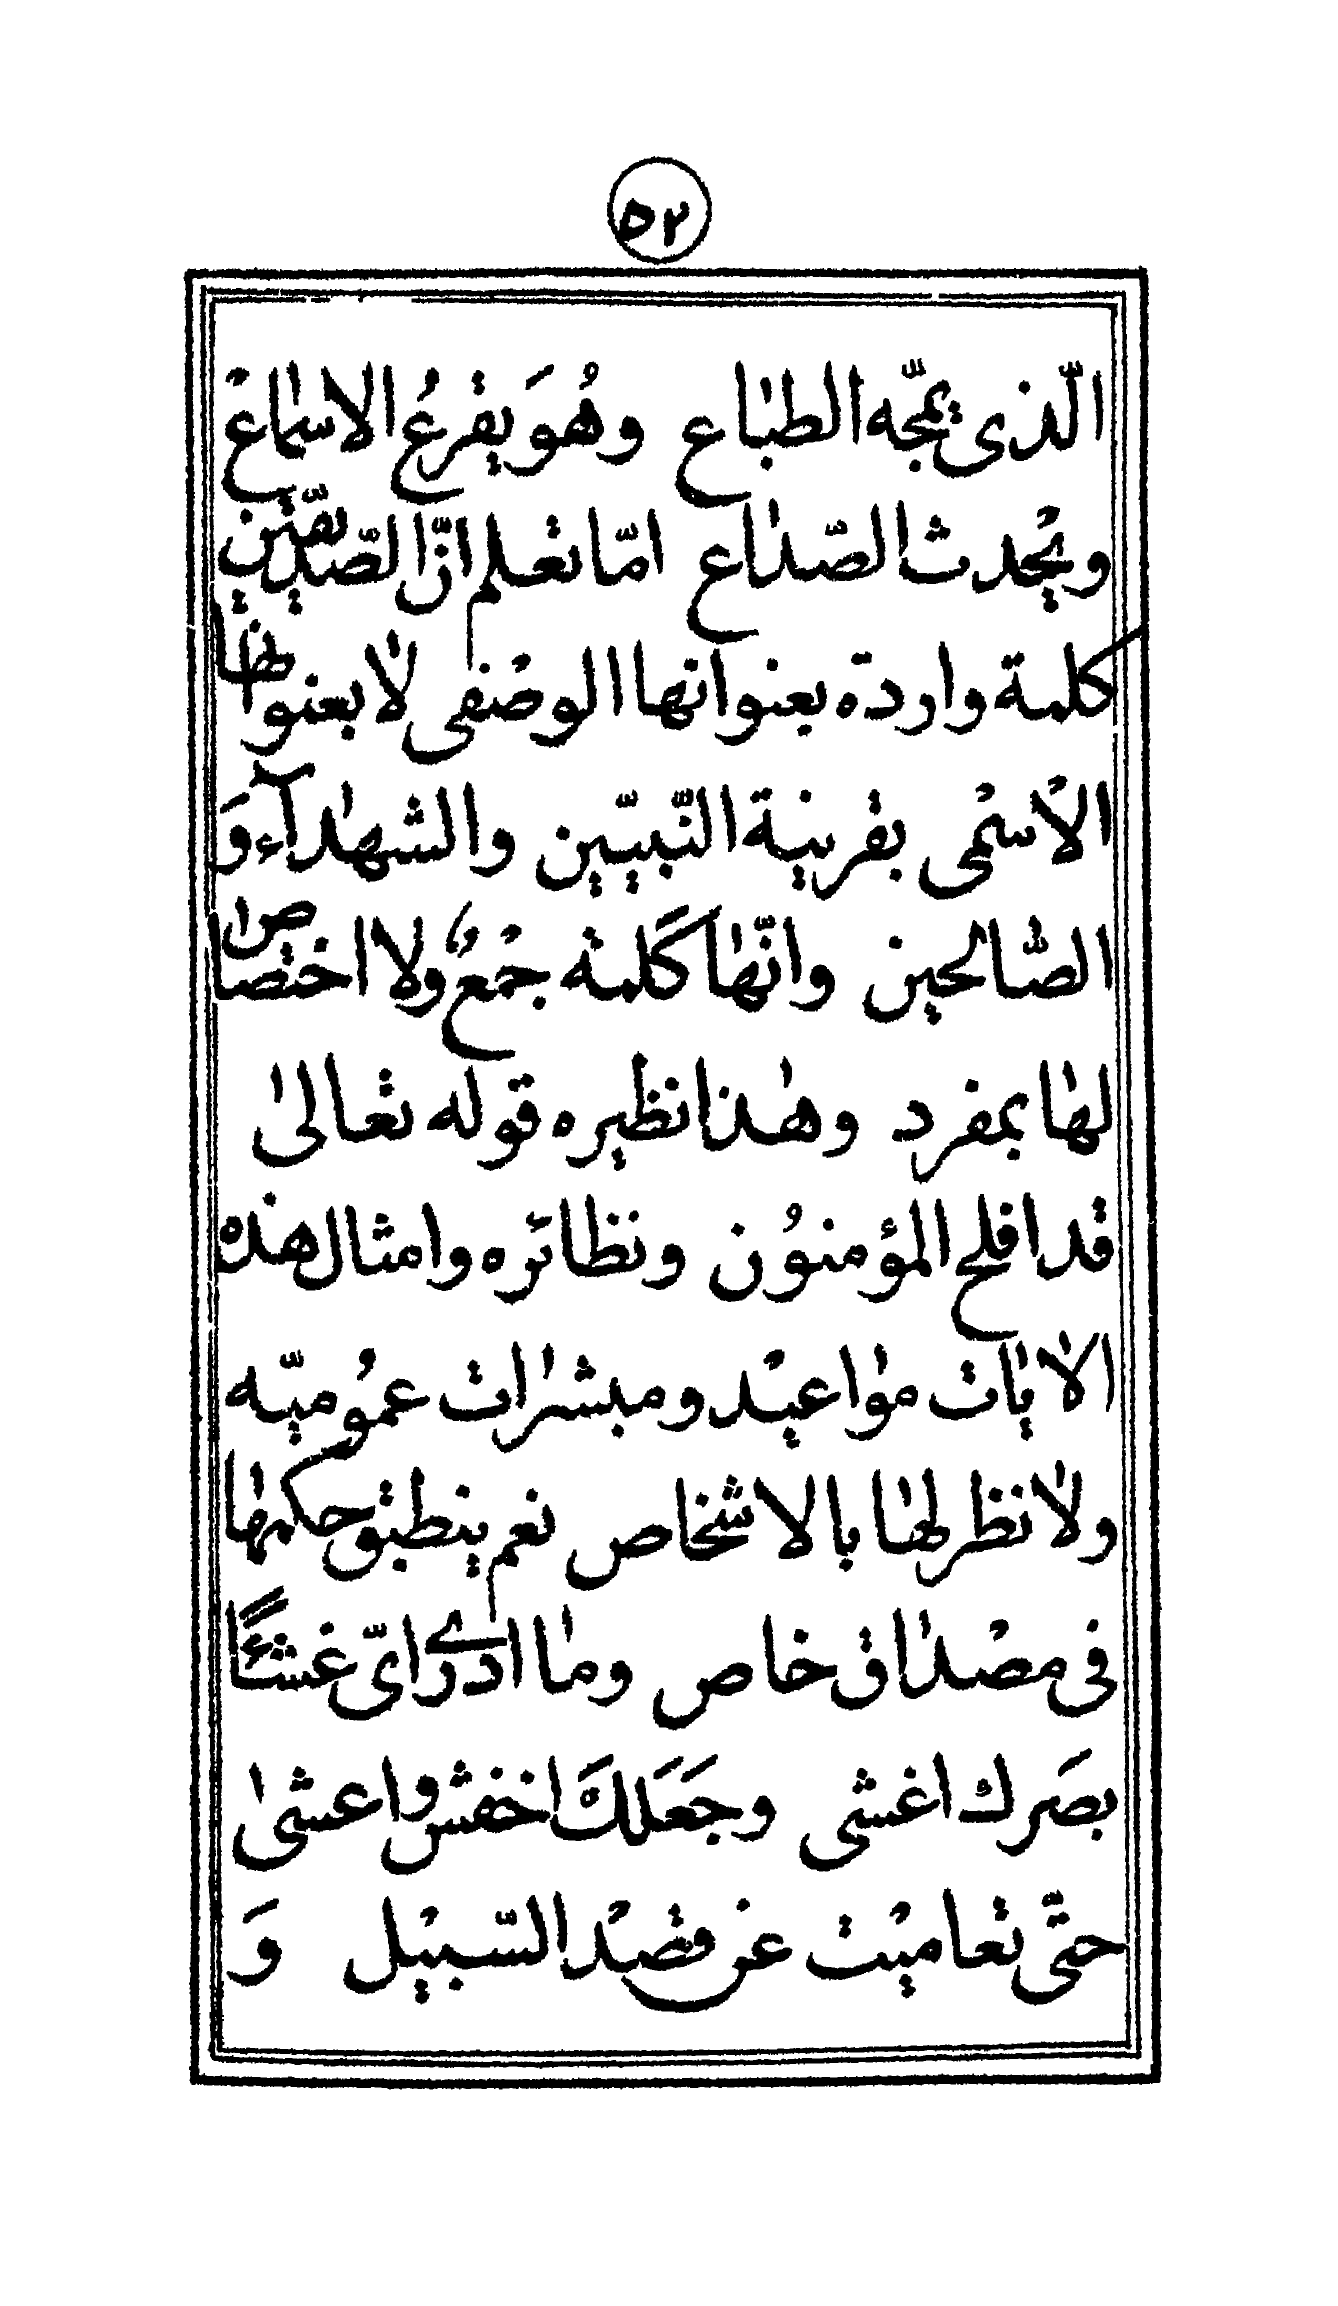 ٥٢
الّذى يمجّه الطبٰاع وهُوَ يقرعُ الاسمٰاعْ
ويحْدث الصّدٰاع امّا تعلم انّ الصّدّيقين
كلمة واردة بعنوانها الوصْفى لا بعنوانها
الاسْمى بقرينة النّبيّين والشهدٰآء وَ
الصّٰالحين وانّهٰا كَلمة جمْعُ ولا اختصاصٰ
لهٰا بمفرد وهٰذا نظيره قوله تعالىٰ
قد افلح المؤمنوُن ونظائره وامثال هذه
الاٰيٰات موٰاعيْد ومبشرٰات عموُميّه
ولاٰ نظر لهٰا بالاشخاص نعم ينطبق حكمهٰا
فى مصْدٰاق خاص ومٰا ادرى اىّ غشَئًا
بصَرك اغشى وجَعَلكَ اخفش واعشىٰ
حتّى تعاميْت عن قصْد السّبيْل وَ